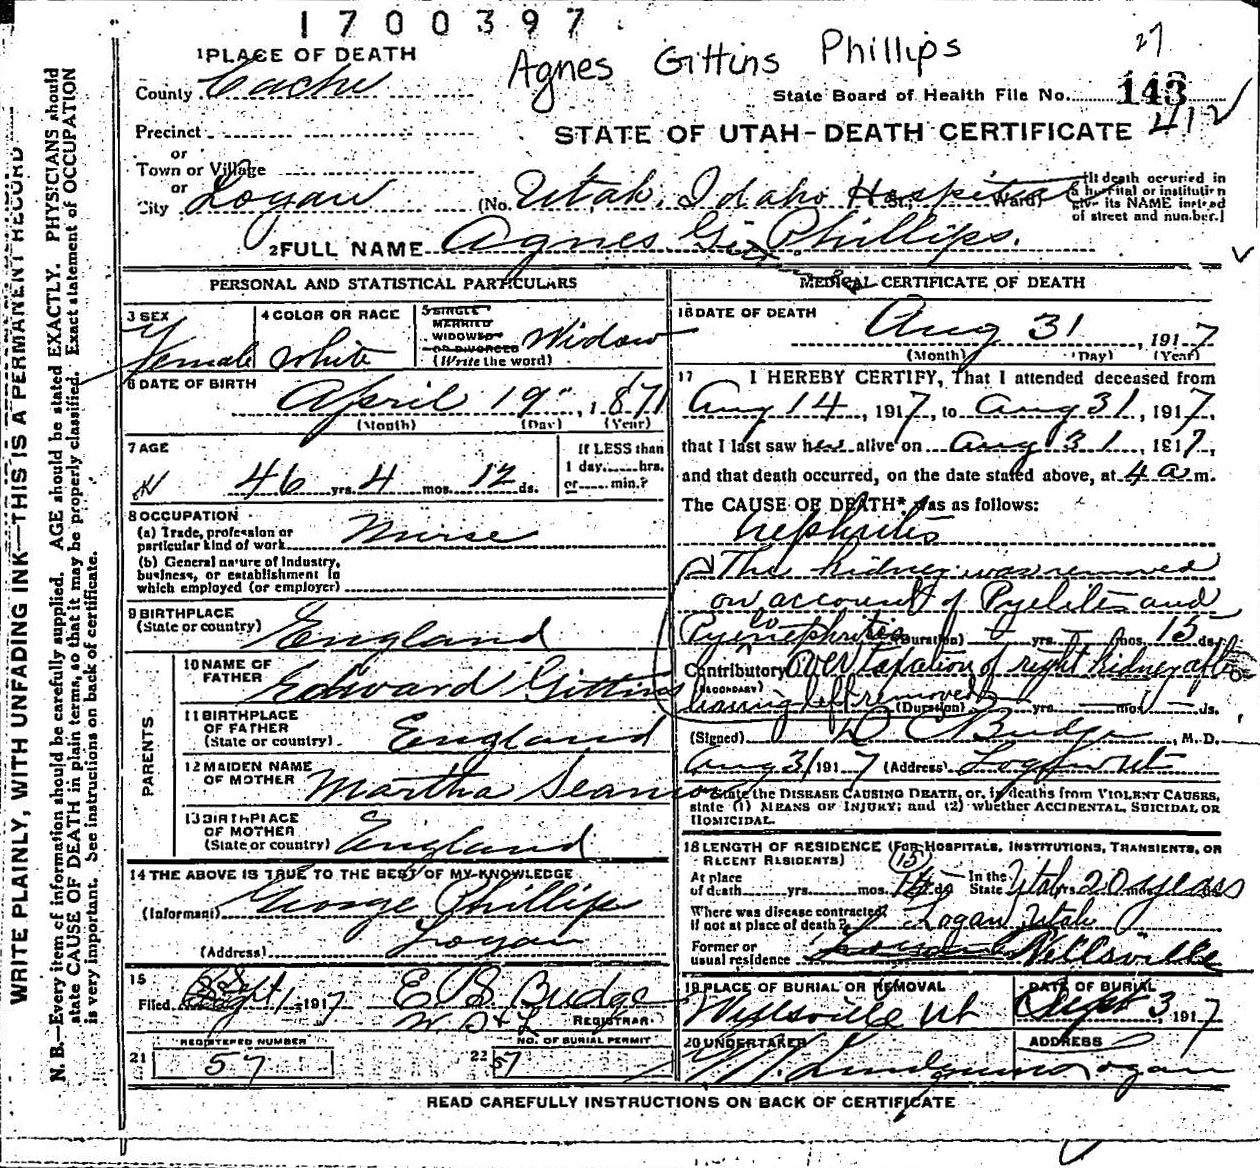 1700397
Agnes Gittins Phillips
27
1 PLACE OF DEATH
County Cache
State Board of Health File No. 143
412
Precinct
STATE OF UTAH-DEATH CERTIFICATE
or
Town or Village
or
City Logan (No. Utah Idaho Hospital St. Ward)
[If death occurred in a hospital or institution give its NAME instead of street and number.]
2 FULL NAME Agnes G. Phillips.
PERSONAL AND STATISTICAL PARTICULARS
3 SEX Female
4 COLOR OR RACE White
5 SINGLE MARRIED WIDOWED OR DIVORCED (Write the word) Widow
6 DATE OF BIRTH April 19, 1871
(Month) (Day) (Year)
7 AGE 46 yrs. 4 mos. 12 ds.
If LESS than 1 day......hrs. or......min.?
8 OCCUPATION
(a) Trade, profession or particular kind of work Nurse
(b) General nature of Industry, business, or establishment in which employed (or employer)
9 BIRTHPLACE (State or country) England
PARENTS
10 NAME OF FATHER Edward Gittins
11 BIRTHPLACE OF FATHER (State or country) England
12 MAIDEN NAME OF MOTHER Martha Seamon
13 BIRTHPLACE OF MOTHER (State or country) England
14 THE ABOVE IS TRUE TO THE BEST OF MY KNOWLEDGE
(Informant) George Phillips
(Address) Logan
15
Filed Sept 1 1917 E B Budge
REGISTRAR
REGISTERED NUMBER
21 57
NO. OF BURIAL PERMIT
22 57
MEDICAL CERTIFICATE OF DEATH
16 DATE OF DEATH Aug 31, 1917
(Month) (Day) (Year)
17 I HEREBY CERTIFY, That I attended deceased from
Aug 14, 1917, to Aug 31, 1917,
that I last saw her alive on Aug 31, 1917,
and that death occurred, on the date stated above, at 4 a m.
The CAUSE OF DEATH* was as follows:
Nephritis
The Kidney was removed
on account of Pyelitis and
Pyelonephritis (Duration) yrs. mos. 15 ds.
Contributory Over taxation of right kidney after
(SECONDARY)
leaving left removed (Duration) yrs. mos. ds.
(Signed) D C Budge, M. D.
Aug 31 1917 (Address) Logan Ut
*State the DISEASE CAUSING DEATH, or, in deaths from VIOLENT CAUSES, state (1) MEANS OF INJURY; and (2) whether ACCIDENTAL, SUICIDAL OR HOMICIDAL.
18 LENGTH OF RESIDENCE (FOR HOSPITALS, INSTITUTIONS, TRANSIENTS, OR RECENT RESIDENTS)
(15)
At place of death yrs. mos. ds. In the State Utah yrs. 20 years
Where was disease contracted? If not at place of death? Logan Utah
Former or usual residence Wellsville
19 PLACE OF BURIAL OR REMOVAL Wellsville Ut
DATE OF BURIAL Sept 3, 1917
20 UNDERTAKER
ADDRESS Logan
READ CAREFULLY INSTRUCTIONS ON BACK OF CERTIFICATE
WRITE PLAINLY, WITH UNFADING INK—THIS IS A PERMANENT RECORD
N. B.—Every item of information should be carefully supplied. AGE should be stated EXACTLY. PHYSICIANS should
state CAUSE OF DEATH in plain terms, so that it may be properly classified. Exact statement of OCCUPATION
is very important. See instructions on back of certificate.